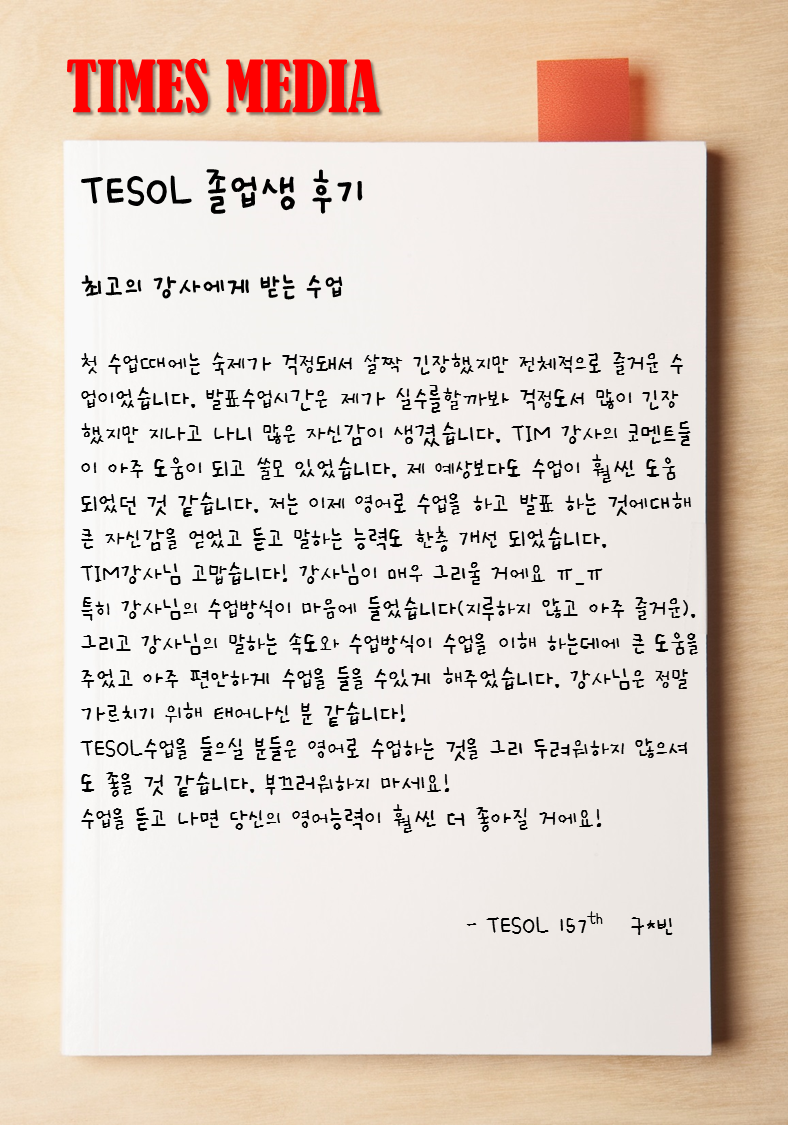 TIMES MEDIA
TESOL 졸업생 후기
최고의 강사에게 받는 수업
첫 수업때에는 숙제가 걱정돼서 살짝 긴장했지만 전체적으로 즐거운 수
업이었습니다. 발표수업시간은 제가 실수를할까봐 걱정도서 많이 긴장
했지만 지나고 나니 많은 자신감이 생겼습니다. TIM 강사의 코멘트들
이 아주 도움이 되고 쓸모 있었습니다. 제 예상보다도 수업이 훨씬 도움
되었던 것 같습니다. 저는 이제 영어로 수업을 하고 발표 하는 것에대해
큰 자신감을 얻었고 듣고 말하는 능력도 한층 개선 되었습니다.
TIM강사님 고맙습니다! 강사님이 매우 그리울 거에요 ㅠ_ㅠ
특히 강사님의 수업방식이 마음에 들었습니다(지루하지 않고 아주 즐거운).
그리고 강사님의 말하는 속도와 수업방식이 수업을 이해 하는데에 큰 도움을
주었고 아주 편안하게 수업을 들을 수있게 해주었습니다. 강사님은 정말
가르치기 위해 태어나신 분 같습니다!
TESOL수업을 들으실 분들은 영어로 수업하는 것을 그리 두려워하지 않으셔
도 좋을 것 같습니다. 부끄러워하지 마세요!
수업을 듣고 나면 당신의 영어능력이 훨씬 더 좋아질 거에요!
- TESOL 157th 구*빈